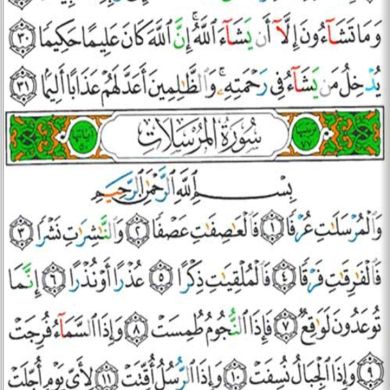 وَمَا تَشَآءُونَ إِلَّآ أَن يَشَآءَ ٱللَّهُ ۚ إِنَّ ٱللَّهَ كَانَ عَلِيمًا حَكِيمًا ٣٠
يُدْخِلُ مَن يَشَآءُ فِى رَحْمَتِهِۦ ۚ وَٱلظَّٰلِمِينَ أَعَدَّ لَهُمْ عَذَابًا أَلِيمًۢا ٣١
سُورَةُ الْمُرْسَلَات
بِسْمِ ٱللَّهِ ٱلرَّحْمَٰنِ ٱلرَّحِيمِ
وَٱلْمُرْسَلَٰتِ عُرْفًا ١ فَٱلْعَٰصِفَٰتِ عَصْفًا ٢ وَٱلنَّٰشِرَٰتِ نَشْرًا ٣
فَٱلْفَٰرِقَٰتِ فَرْقًا ٤ فَٱلْمُلْقِيَٰتِ ذِكْرًا ٥ عُذْرًا أَوْ نُذْرًا ٦ إِنَّمَا
تُوعَدُونَ لَوَٰقِعٌ ٧ فَإِذَا ٱلنُّجُومُ طُمِسَتْ ٨ وَإِذَا ٱلسَّمَآءُ فُرِجَتْ
٩ وَإِذَا ٱلْجِبَالُ نُسِفَتْ ١٠ وَإِذَا ٱلرُّسُلُ أُقِّتَتْ ١١ لِأَىِّ يَوْمٍ أُجِّلَتْ